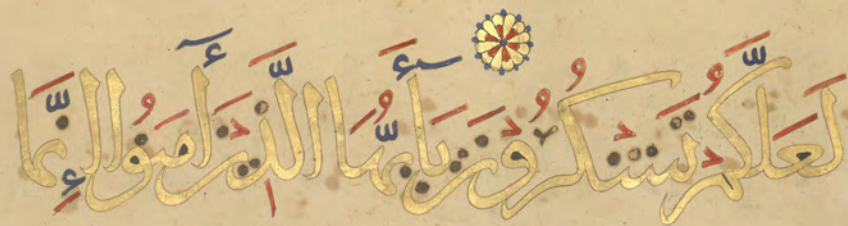 لَعَلَّكُمْ تَشْكُرُونَ يَٰٓأَيُّهَا ٱلَّذِينَ ءَامَنُوٓا۟ إِنَّمَا